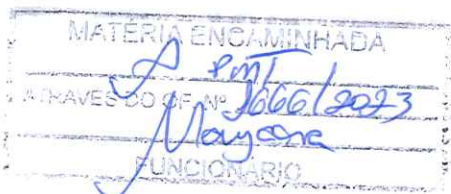 MATÉRIA ENCAMINHADA
A PMT
ATRAVÉS DO OF. Nº 2666/2023
Mayara
FUNCIONÁRIO